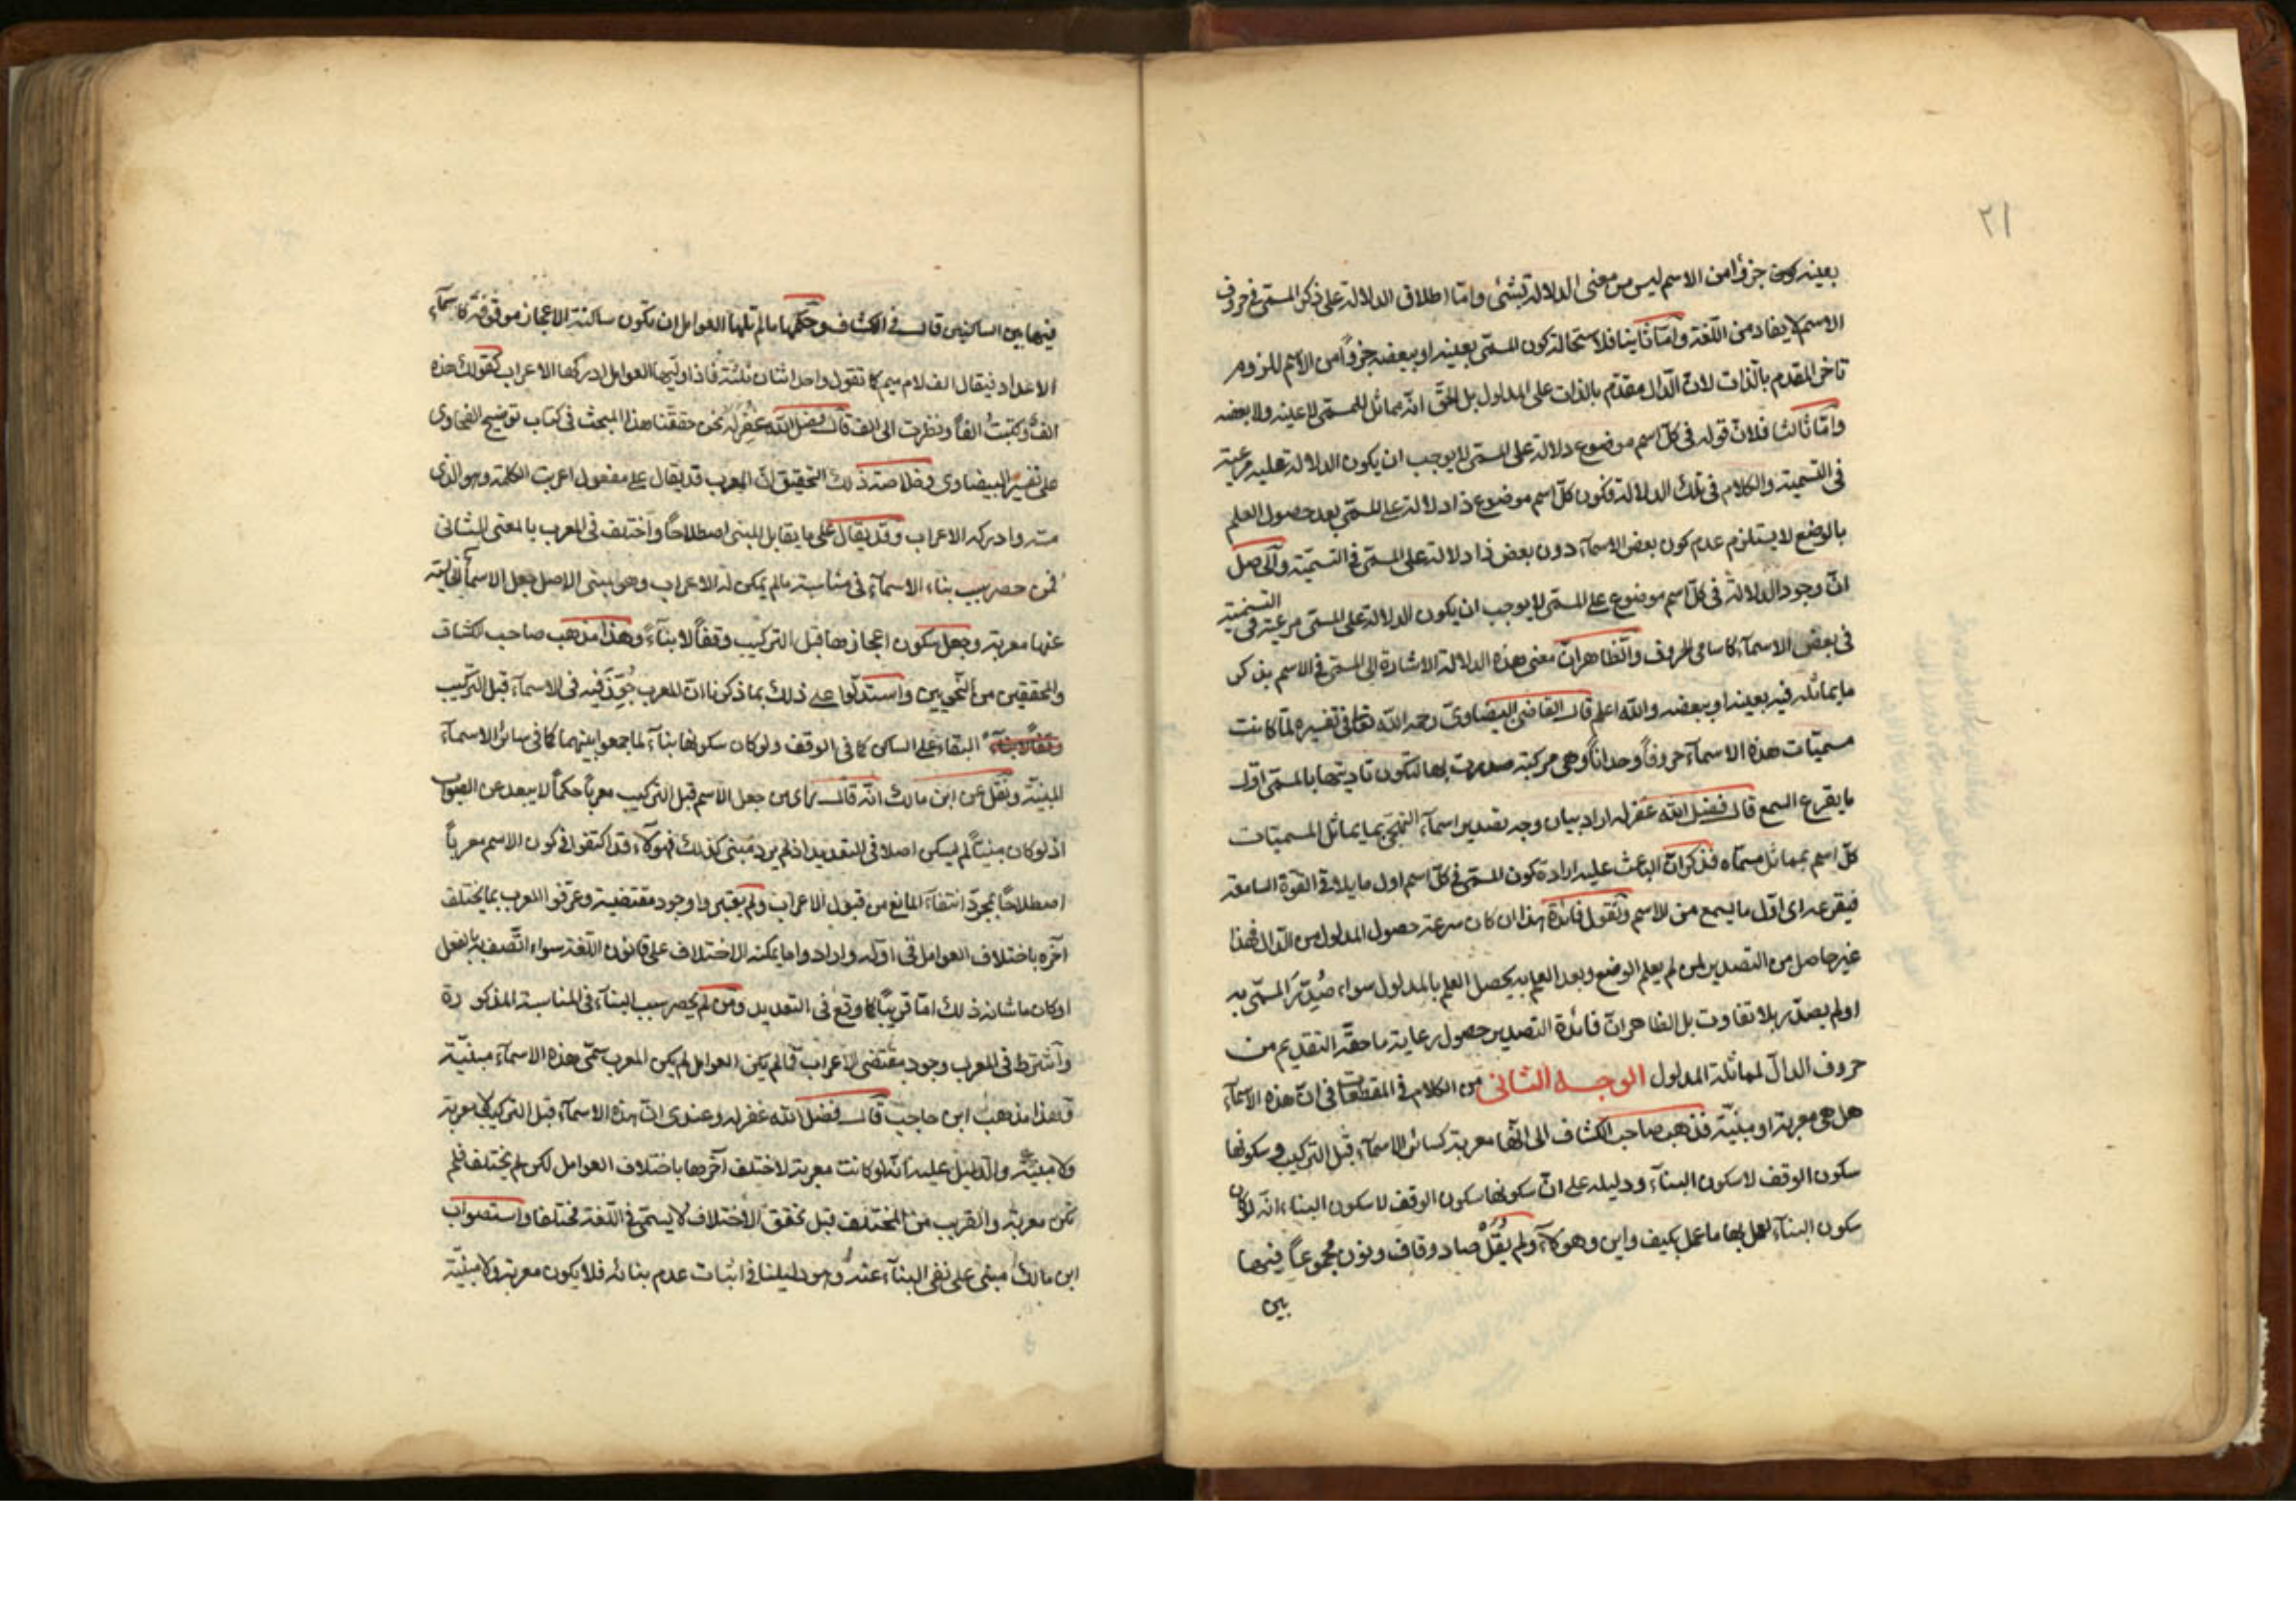 ٢١
بعينه كونه جزؤا من الاسم ليس من معنى الدلالة بشئ وامّا اطلاق الدلالة على ذكر المسمّى فى حروف
الاسم لا يفاد من اللّغة وامّا ثانيا فلاستحالة كون المسمّى بعينه او ببعضه جزؤاً من الاسم للزوم
تاخر المقدم بالذات لانّ الدّال مقدّم بالذات على المدلول بل الحقّ انّه مماثل للمسمّى لا عينه ولا بعضه
وامّا ثالثا فلانّ قوله فى كلّ اسم موضوع دلالة على المسمّى لا يوجب ان يكون الدلالة عليه مرعيّة
فى التسمية والكلام فى تلك الدلالة فكون كلّ اسم موضوع ذا دلالة على المسمّى بعد حصول العلم
بالوضع لا يستلزم عدم كون بعض الاسمآء دون بعض ذا دلالة على المسمّى فى التسميّة والحاصل
انّ وجود الدلالة فى كلّ اسم موضوع على المسمّى لا يوجب ان يكون الدلالة على المسمّى مرعيّة فى التسمية
فى بعض الاسمآء كاسامى الحروف والظّاهر انّ معنى هذه الدلالة الاشارة الى المسمّى فى الاسم بذكر
ما يماثله فيه بعينه او ببعضه والله اعلم قال القاضى البيضاوىّ رحمه الله تعالى فى تفسيره لمّا كانت
مسميّات هذه الاسمآء حروفاً وحداناً وهى مركبة صدرت بها لتكون تاديتها بالمسمّى اوّل
ما يقرع السمع قال فضل الله غفر له اراد بيان وجه تصدير اسمآء التهجّى بما يماثل المسميّات
كلّ اسم بمماثل مسمّاه فذكر انّ الباعث عليه ارادة كون المسمّى فى كلّ اسم اول ما يلاقى القوّة السامعة
فيقرعه اى اوّل ما يسمع من الاسم ونقول فائدة هذا ان كان سرعة حصول المدلول من الدّال فهذا
غير حاصل من التصدير لمن لم يعلم الوضع وبعد العلم به يحصل العلم بالمدلول سواء صُدّرَ المسمّى به
او لم يصدّر بلا تفاوت بل الظاهر انّ فائدة التصدير حصول رعاية ما حقّه التقديم من
حروف الدالّ لمماثلة المدلول الوجه الثانى من الكلام فى المقطعات فى انّ هذه الاسمآء
هل هى معربة او مبنيّة فذهب صاحب الكشاف الى انّها معربة كسائر الاسمآء قبل التركيب وسكونها
سكون الوقف لا سكون البنآء ودليله على انّ سكونها سكون الوقف لا سكون البناء انّه لو كان
سكون البنآء لعمل بها ما عمل بكيف واين وهؤلآء ولم يُقَلْ صاد وقاف ونون مجموعاً فيها
بين
فيها بين الساكنين قال فى الكشاف وحكمها ما لم تلها العوامل ان تكون ساكنة الاعجاز موقوفة كاسمآء
الاعداد فيقال الف لام ميم كما تقول واحد اثنان ثلثة فاذا وليها العوامل ادركها الاعراب كقولك هذه
الفٌ وكتبتُ الفاً ونظرت الى الف قال فضل الله غفر له نحن حققنا هذا المبحث فى كتاب توضيح الفحاوى
على تفسير البيضاوى وخلاصة ذلك التحقيق انّ المعرب قد يقال على مفعول اعربت الكلمة وهو الذى
وادركه الاعراب وقد يقال على ما يقابل المبنى اصطلاحاً واختلف فى المعرب بالمعنى الثانى
فمن حصر سبب بناء الاسمآء فى مناسبة ما لم يمكن له الاعراب وهو مبنى الاصل جعل الاسمآء الخالية
عنها معربة وجعل سكون اعجازها قبل التركيب وقفاً لا بنآءً وهذا مذهب صاحب الكشاف
والمحققين من النّحويين واستدلّوا على ذلك بما ذكرنا انّ المعرب جُوّزَ فيه فى الاسمآء قبل التركيب
التقاء على الساكن كما فى الوقف ولو كان سكونها بنآء لما جمعوا بينهما كما فى سائر الاسمآء
المبنيّة ونقل عن ابن مالك انّه قال راى من جعل الاسم قبل التركيب معرباً حكماً لا يبعد عن الصواب
اذ لو كان مبنيّاً لم يسكن اصلا فى التعديد اذ لم يرد مبنى كذلك فهؤلآء قد اكتفوا فى كون الاسم معرباً
اصطلاحاً بمجرّد انتفاء المانع من قبول الاعراب ولم يعتبروا وجود مقتضية وعرّفوا المعرب بما يختلف
آخره باختلاف العوامل فى اوّله وارادوا ما يمكنه الاختلاف على قانون اللّغة سواء اتّصف به بالفعل
او كان ما شانه ذلك امّا قريبًا كما وقع فى التعديد ومن لم يحصر سبب البنآء فى المناسبة المذكورة
واشترط فى المعرب وجود مقتضى الاعراب فما لم يكن العوامل لم يكن المعرب سمّى هذه الاسمآء مبنيّة
وهذا مذهب ابن حاجب قال فضل الله غفر له وعندى انّ هذه الاسمآء قبل التركيب لا معربة
ولا مبنيّة والدّليل عليه انّه لو كانت معربة لاختلف آخرها باختلاف العوامل لكن لم يختلف فلم
تكن معربة والقريب من المختلف قبل تحقق الاختلاف لا يسمّى فى اللّغة مختلفا واستصواب
ابن مالك مبنى على نفى البنآء عنه وهو دليلنا فى اثبات عدم بنائه فلا يكون معربة ولا مبنيّة